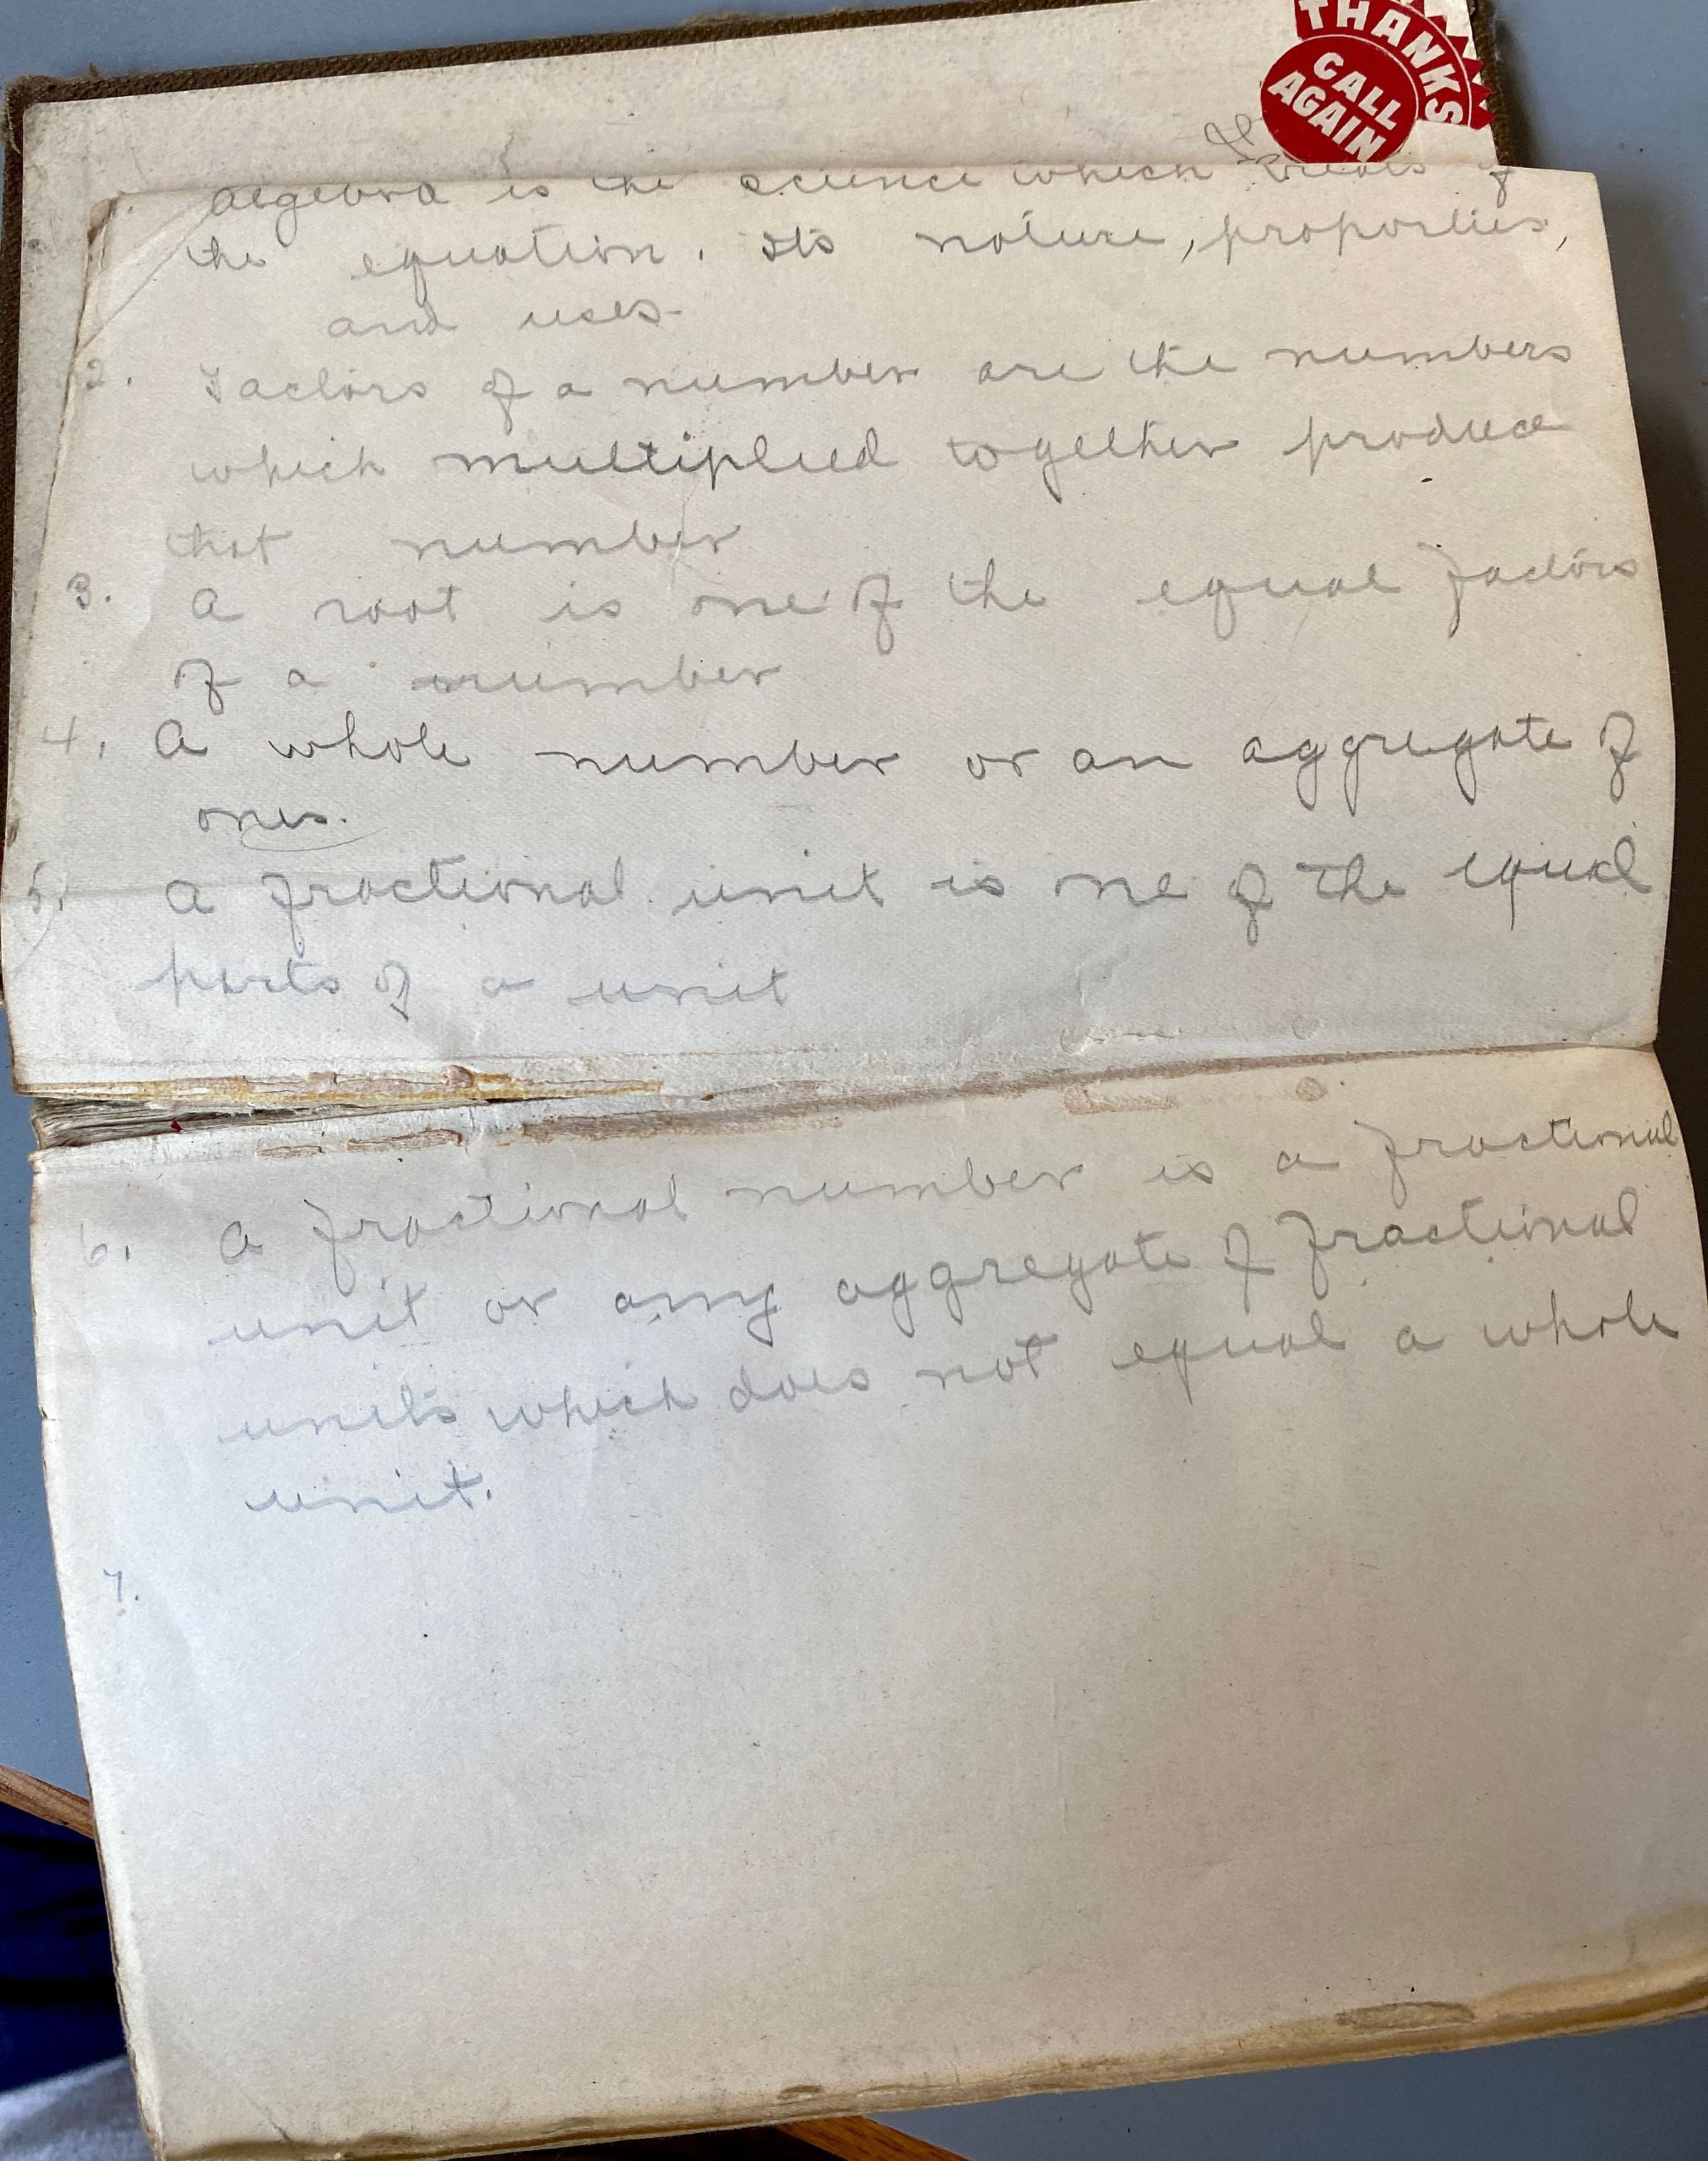 THANKS
CALL
AGAIN
1. Algebra is the science which treats of
the equation. Its nature, properties,
and uses.
2. Factors of a number are the numbers
which multiplied together produce
that number
3. A root is one of the equal factors
of a number
4. A whole number or an aggregate of
ones.
5. A fractional unit is one of the equal
parts of a unit
6. A fractional number is a fractional
unit or any aggregate of fractional
units which does not equal a whole
unit.
7.